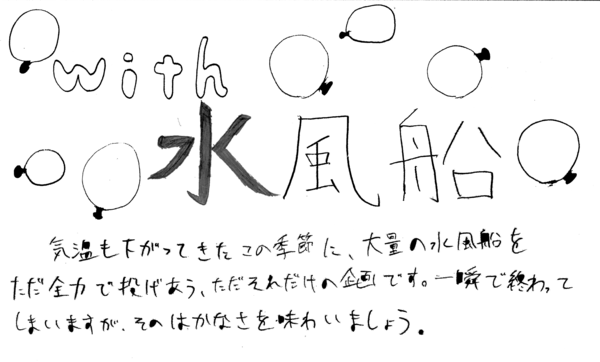 with
水風船
気温も下がってきたこの季節に、大量の水風船を
ただ全力で投げあう、ただそれだけの企画です。一瞬で終わって
しまいますが、そのはかなさを味わいましょう。